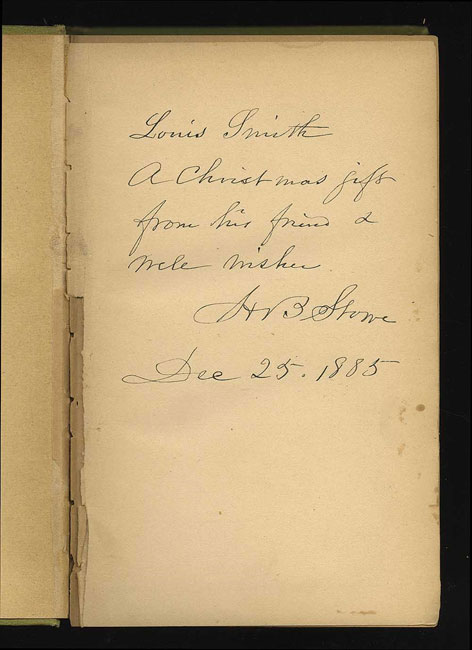 Louis Smith
A Christmas gift
from his friend &
well wisher
H B Stowe
Dec 25. 1885